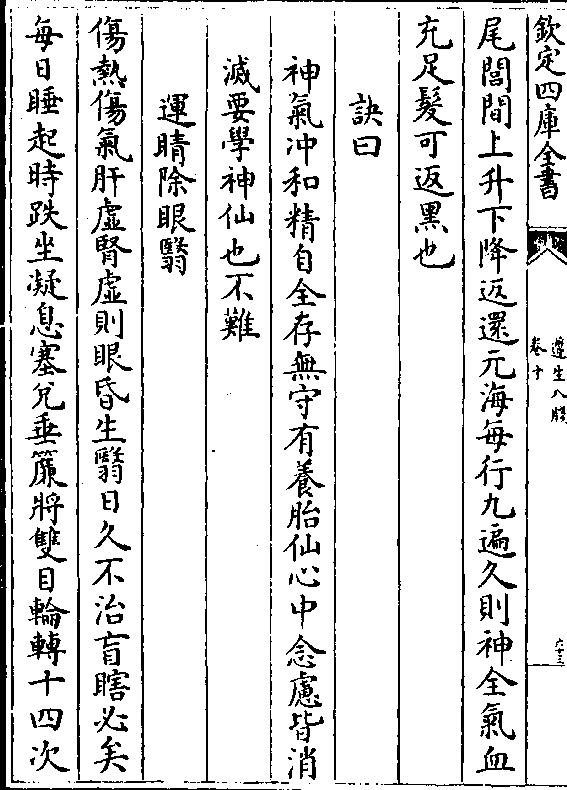 欽定四庫全書
遵生八牋
卷十
六十三
尾閭間上升下降返還元海每行九遍久則神全氣血
充足髮可返黑也
訣曰
神氣冲和精自全存無守有養胎仙心中念慮皆消
滅要學神仙也不難
運睛除眼翳
傷熱傷氣肝虛腎虛則眼昏生翳日久不治盲瞎必矣
每日睡起時趺坐凝息塞兌垂簾將雙目輪轉十四次